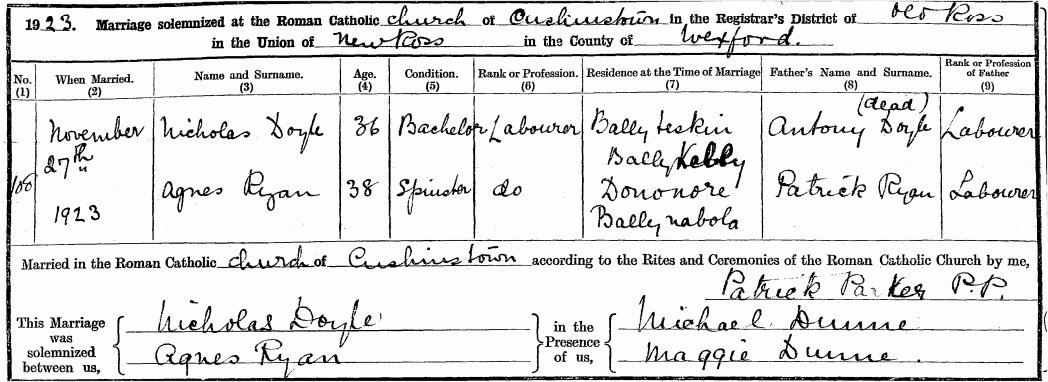 1923. Marriage solemnized at the Roman Catholic church of Cushinstown in the Registrar's District of Old Ross
in the Union of New Ross in the County of Wexford.
No. (1) When Married. (2) Name and Surname. (3) Age. (4) Condition. (5) Rank or Profession. (6) Residence at the Time of Marriage (7) Father's Name and Surname. (8) Rank or Profession of Father (9)
(dead)
November Nicholas Doyle 36 Bachelor Labourer Ballyleskin Antony Doyle Labourer
27th Bally Kelly
100 Agnes Ryan 38 Spinster do Dononore Patrick Ryan Labourer
1923 Ballynabola
Married in the Roman Catholic church of Cushinstown according to the Rites and Ceremonies of the Roman Catholic Church by me,
Patrick Parker P.P.
This Marriage was solemnized between us, Nicholas Doyle in the Presence of us, Michael Dunne
Agnes Ryan Maggie Dunne.